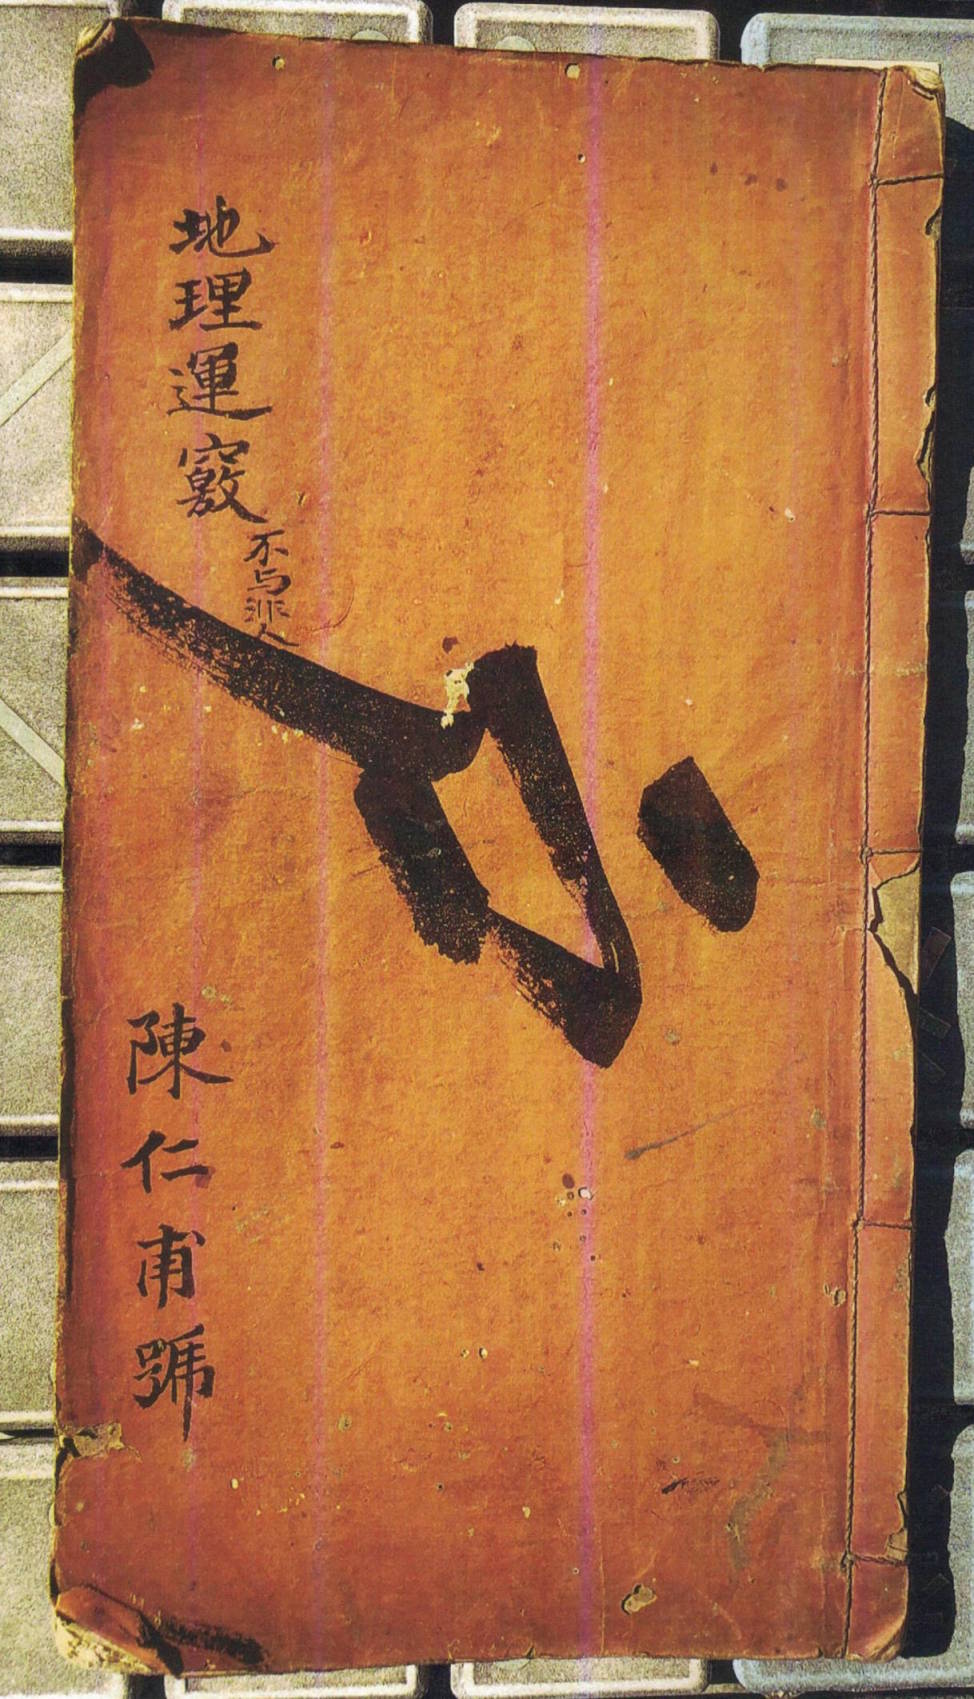 地理運竅
不与非人
陳仁甫號